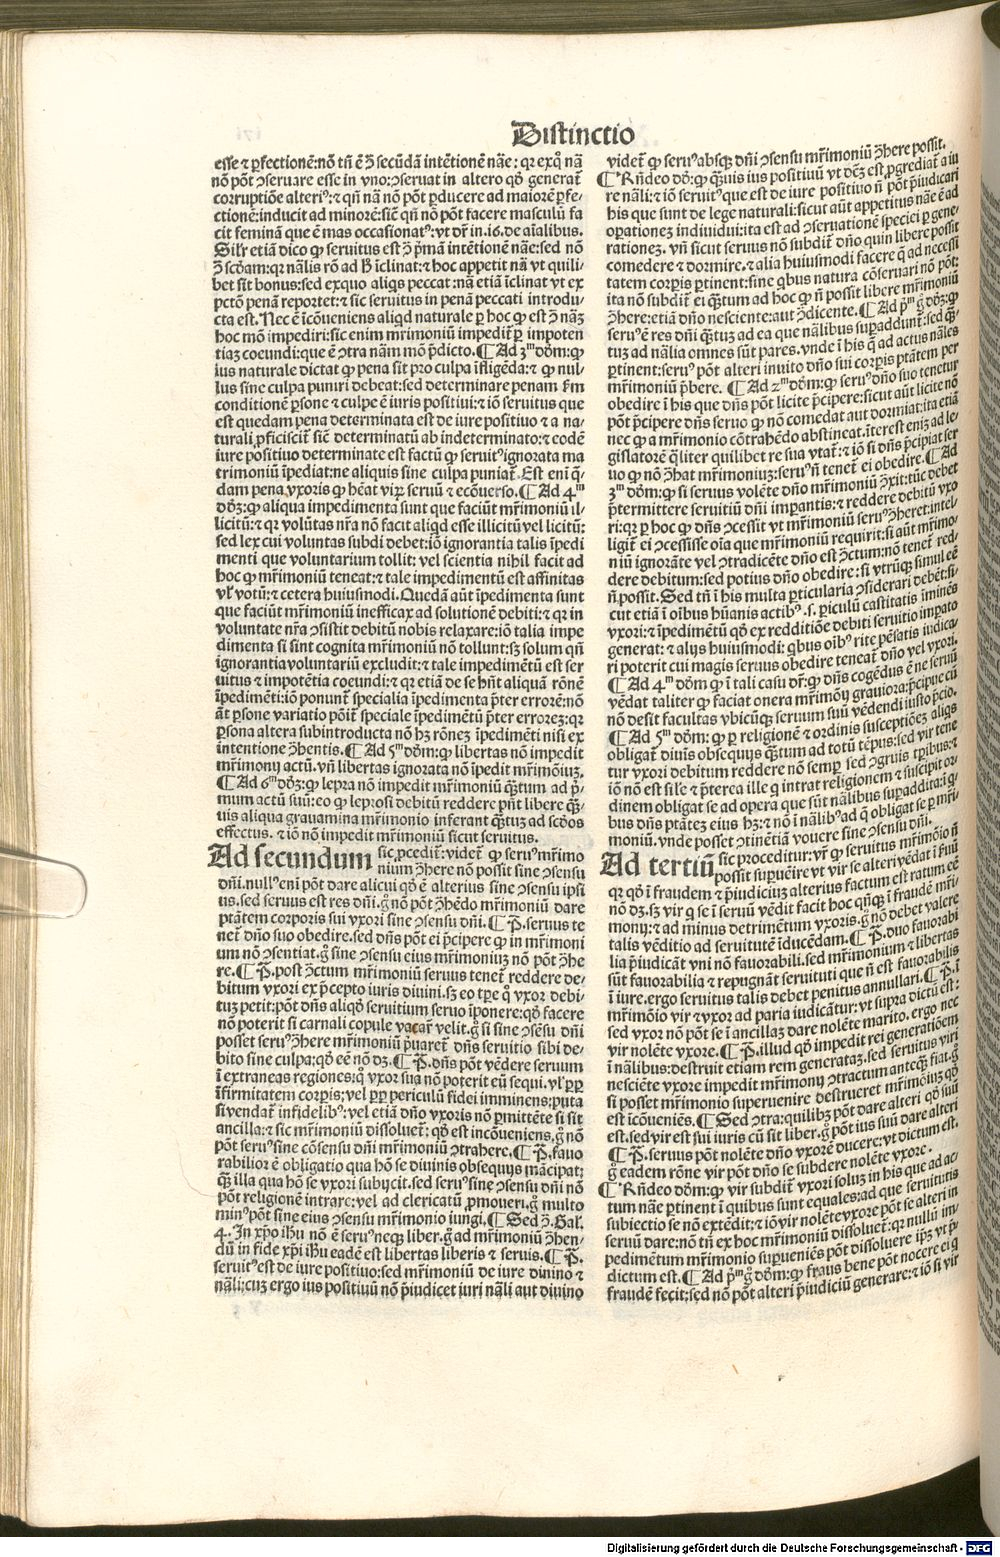 Distinctio
esse ⁊ ꝑfectionē: nō tn̄ ē ꝯͣ secūdā intētionē nāe: qꝛ exqͦ nā
nō pōt ꝯseruare esse in vno: ꝯseruat in altero qd̓ generat̄
corruptiōe alteriꝰ: ⁊ qn̄ nā nō pōt ꝓducere ad maiorē ꝑfe-
ctionē: inducit ad minorē: sic̄ qn̄ nō pōt facere masculū fa
cit feminā que ē mas occasionatꝰ: vt dr̄ in .16. de aīalibus.
Silr̄ etiā dico ꝙ seruitus est ꝯͣ pͥmā intētionē nāe: sed nō
ꝯͣ scd̓am: qꝛ nālis rō ad hͦ īclinat: ⁊ hoc appetit nā vt quili-
bet sit bonus: sed exquo aliqs peccat: nā etiā īclinat vt ex
pctō penā reportet: ⁊ sic seruitus in penā peccati introdu-
cta est. Nec ē icōueniens aliqd naturale ꝑ hoc ꝙ est ꝯͣ nāꝫ
hoc mō impediri: sic enim mr̄imoniū impedit̄ ꝑ impoten
tiaꝫ coeundi: que ē ꝯtra nām mō p̄dicto. ¶ Ad 3ᵐ dd̓m: ꝙ
ius naturale dictat ꝙ pena sit pro culpa īfligēda: ⁊ ꝙ nul-
lus sine culpa puniri debeat: sed determinare penam ẜm
conditionē ꝑsone ⁊ culpe ē iuris positiui: ⁊ iō seruitus que
est quedam pena determinata est de iure positiuo ⁊ a na-
turali ꝓficiscit̄ sic̄ determinatū ab indeterminato: ⁊ eodē
iure positiuo determinate est factū ꝙ seruitꝰ ignorata ma
trimoniū īpediat: ne aliquis sine culpa puniat̄. Est enī q̄-
dam pena vxoris ꝙ hēat virꝫ seruū ⁊ ecōuerso. ¶ Ad 4ᵐ
dd̓ꝫ: ꝙ aliqua impedimenta sunt que faciūt mr̄imoniū il-
licitū: ⁊ qꝛ volūtas nr̄a nō facit aliqd esse illicitū vel licitū:
sed lex cui voluntas subdi debet: iō ignorantia talis īpedi
menti que voluntarium tollit: vel scientia nihil facit ad
hoc ꝙ mr̄imoniū teneat: ⁊ tale impedimentū est affinitas
vl̓ votū: ⁊ cetera huiusmodi. Quedā aūt īpedimenta sunt
que faciūt mr̄imoniū inefficax ad solutionē debiti: ⁊ qꝛ in
voluntate nr̄a ꝯsistit debitū nobis relaxare: iō talia impe
dimenta si sint cognita mr̄imoniū nō tollunt: sꝫ solum qn̄
ignorantia voluntariū excludit: ⁊ tale impedimentū est ser
uitus ⁊ impotētia coeundi: ⁊ qꝛ etiā de se hn̄t aliquā rōnē
īpedimēti: iō ponunt̄ specialia īpedimenta p̄ter errorē: nō
āt ꝑsone variatio pōit̄ speciale īpedimētū p̄ter erroreꝫ: qꝛ
ꝑsona altera subintroducta nō hꝫ rōneꝫ īpedimēti nisi ex
intentione ꝯͣhentis. ¶ Ad 5ᵐ dd̓m: ꝙ libertas nō impedit
mr̄imonij actū. vn̄ libertas ignorata nō īpedit mr̄imōiuꝫ.
¶ Ad 6ᵐ dd̓ꝫ: ꝙ lepra nō impedit mr̄imoniū q̄ꝫtum ad pͥ-
mum actū suū: eo ꝙ leprosi debitū reddere pn̄t libere q̄ꝫ-
uis aliqua grauamina mr̄imonio inferant q̄ꝫtuꝫ ad scd̓os
effectus. ⁊ iō nō impedit mr̄imoniū sicut seruitus.
Ad secundum sic ꝓcedit̄: videt̄ ꝙ seruꝰ mr̄imo
nium ꝯͣhere nō possit sine ꝯsensu
dn̄i. nullꝰ enī pōt dare alicui qd̓ ē alterius sine ꝯsensu ipsi
us. sed seruus est res dn̄i. gͦ nō pōt ꝯͣhēdo mr̄imoniū dare
ptātem corporis sui vxori sine ꝯsensu dn̄i. ¶ P̄. seruus te
net̄ dn̄o suo obedire. sed dn̄s pōt ei p̄cipere ꝙ in mr̄imoni
um nō ꝯsentiat. gͦ sine ꝯsensu eius mr̄imoniuꝫ nō pōt ꝯͣhe
re. ¶ P̄. post ꝯͣctum mr̄imoniū seruus tenet̄ reddere de-
bitum vxori ex p̄cepto iuris diuini. sꝫ eo tp̄e qͦ vxor debi-
tuꝫ petit: pōt dn̄s aliqd̓ seruitium seruo īponere: qd̓ facere
nō poterit si carnali copule vacar̄ velit. gͦ si sine ꝯsēsu dn̄i
posset seruꝰ ꝯͣhere mr̄imoniū p̄uaret̄ dn̄s seruitio sibi de-
bito sine culpa: qd̓ eē nō dꝫ. ¶ P̄. dn̄s pōt vēdere seruum
ī extraneas regiones: qͦ vxor sua nō poterit eū sequi. vl̓ ꝓꝑ
īfirmitatem corpis; vel ꝓꝑ periculū fidei imminens; puta
si vendat̄ infidelibꝰ: vel etiā dn̄o vxoris nō ꝑmittēte si sit
ancilla: ⁊ sic mr̄imoniū dissoluet̄: qd̓ est incōueniens. gͦ nō
pōt seruꝰ sine cōsensu dn̄i mr̄imoniū ꝯtrahere. ¶ P̄. fauo
rabilior ē obligatio qua hō se diuinis obsequijs mācipat:
q̄ꝫ illa qua hō se vxori subijcit. sed seruꝰ sine ꝯsensu dn̄i nō
pōt religionē intrare: vel ad clericatū ꝓmoueri. gͦ multo
minꝰ pōt sine eius ꝯsensu mr̄imonio iungi. ¶ Sed ꝯͣ. Gal̓.
4. In xp̄o ihū nō ē seruꝰ neqꝫ liber. gͦ ad mr̄imoniū ꝯͣhen-
dū in fide xp̄i ihū eadē est libertas liberis ⁊ seruis. ¶ P̄.
seruitꝰ est de iure positiuo: sed mr̄imoniū de iure diuino ⁊
nāli: cuꝫ ergo ius positiuū nō p̄iudicet iuri nāli aut diuino
videt̄ ꝙ seruꝰ absqꝫ dn̄i ꝯsensu mr̄imoniū ꝯͣhere possit.
¶ Rn̄deo dd̓: ꝙ q̄ꝫuis ius positiuū vt dc̄ꝫ est ꝓgrediat̄ a iu
re nāli: ⁊ iō seruitꝰ que est de iure positiuo n̄ pōt p̄iudicari
his que sunt de lege naturali: sicut aūt appetitus nāe ē ad
ꝯseruationē speciei ꝑ gene-
rationeꝫ. vn̄ sicut seruus nō subdit̄ dn̄o quin libere possit
comedere ⁊ dormire. ⁊ alia huiusmodi facere q̄ ad necessi
tatem corꝑis ꝑtinent: sine qbus natura cōseruari nō pōt:
ita nō subdit̄ ei q̄ꝫtum ad hoc ꝙ n̄ possit libere mr̄imoniū
ꝯͣhere: etiā dn̄o nesciente: aut ꝯͣdicente. ¶ Ad pͥᵐ gͦ dd̓ꝫ: ꝙ
seruꝰ ē res dn̄i q̄ꝫtuꝫ ad ea que nālibus suꝑaddunt̄: sed q̄ꝫ-
tuꝫ ad nālia omnes sūt pares. vnde ī his q̄ ad actus nāles
ꝑtinent: seruꝰ pōt alteri inuito dn̄o sui corꝑis ptātem per
mr̄imoniū p̄bere. ¶ Ad 2ᵐ dd̓m: ꝙ seruꝰ dn̄o suo tenetur
obedire ī his que dn̄s pōt licite p̄cipere: sicut aūt licite nō
pōt p̄cipere dn̄s seruo ꝙ nō comedat aut dormiat: ita etiā
nec ꝙ a mr̄imonio cōtrahēdo abstineat. īterest eniꝫ ad le-
gislatorē q̄liter quilibet re sua vtat̄: ⁊ iō si dn̄s p̄cipiat ser
uo ꝙ nō ꝯͣhat mr̄imoniuꝫ: seruꝰ n̄ tenet̄ ei obedire. ¶ Ad
3ᵐ dd̓m: ꝙ si seruus volēte dn̄o mr̄imoniū ꝯͣxit: tūc debet
p̄termittere seruitiū dn̄i imꝑantis: ⁊ reddere debitū vxo
ri: qꝛ ꝑ hoc ꝙ dn̄s ꝯcessit vt mr̄imoniū seruꝰ ꝯͣheret: intel-
ligit̄ ei ꝯcessisse oīa que mr̄imoniū requirit: si aūt mr̄imo-
niū ignorāte vel ꝯtradicēte dn̄o est ꝯͣctum: nō tenet̄ red-
dere debitum: sed potius dn̄o obedire: si vtrūqꝫ simul eē
n̄ possit. Sed tn̄ ī his multa ꝑticularia ꝯsiderari debēt: si-
cut etiā ī oībus hūanis actibꝰ .s. ꝑiculū castitatis īminēs
vxori: ⁊ īpedimētū qd̓ ex redditiōe debiti seruitio imꝑato
generat̄: ⁊ alijs huiusmodi: qbus oībꝰ rite pēsatis iudica-
ri poterit cui magis seruus obedire teneat̄ dn̄o vel vxori.
¶ Ad 4ᵐ dd̓m ꝙ ī tali casu dr̄: ꝙ dn̄s cogēdus ē ne seruū
vēdat taliter ꝙ faciat onera mr̄imonij grauiora: p̄cipue cū
nō desit facultas vbicūqꝫ seruum suū vēdendi iusto p̄cio.
¶ Ad 5ᵐ dd̓m: ꝙ ꝑ religionē ⁊ ordinis susceptiōeꝫ aliqs
obligat̄ diuīs obsequijs q̄ꝫtum ad totū tēpus: sed vir tene
tur vxori debitum reddere nō semꝑ sed ꝯgruis tꝑibus: ⁊
iō nō est sile ⁊ p̄terea ille q intrat religionem ⁊ suscipit or-
dinem obligat se ad opera que sūt nālibus suꝑaddita: ī q-
bus dn̄s ptāteꝫ eius hꝫ: ⁊ nō ī nālibꝰ ad q̄ obligat se ꝑ mr̄i-
moniū. vnde posset ꝯtinētiā vouere sine ꝯsensu dn̄i.
Ad tertiū sic proceditur: vr̄ ꝙ seruitus mr̄imōio n̄
possit suꝑuēire vt vir se alteri vēdat ī ẜuū
qꝛ qd̓ ī fraudem ⁊ p̄iudiciuꝫ alterius factum est ratum eē
nō dꝫ. sꝫ vir q se ī seruū vēdit facit hoc qn̄qꝫ ī fraudē mr̄i-
monij: ⁊ ad minus detrimētum vxoris. gͦ nō debet valere
talis vēditio ad seruitutē īducēdam. ¶ P̄. duo fauorabi
lia p̄iudicāt vni nō fauorabili. sed mr̄imonium ⁊ libertas
sūt fauorabilia ⁊ repugnāt seruituti que n̄ est fauorabilis
ī iure. ergo seruitus talis debet penitus annullari. ¶ P̄. ī
mr̄imōio vir ⁊ vxor ad paria iudicātur: vt supra dictū est:
sed vxor nō pōt se ī ancillaꝫ dare nolēte marito. ergo nec
vir nolēte vxore. ¶ P̄. illud qd̓ impedit rei generatiōem
ī nālibus: destruit etiam rem generataꝫ. sed seruitus viri
nesciēte vxore impedit mr̄imonij ꝯtractum anteqꝫ fiat. gͦ
si posset mr̄imonio superuenire destrueret mr̄imōiuꝫ qd̓
est icōueniēs. ¶ Sed ꝯtra: quilibꝫ pōt dare alteri qd̓ suū
est. sed vir est sui iuris cū sit liber. gͦ pōt ius suū dare alteri
¶ P̄. seruus pōt nolēte dn̄o vxorē ducere: vt dictum est.
gͦ eadem rōne vir pōt dn̄o se subdere nolēte vxore.
¶ Rn̄deo dd̓m: ꝙ vir subdit̄ vxori soluꝫ in his que ad ac-
tum nāe ꝑtinent ī quibus sunt equales: ad que seruitutis
subiectio se nō extēdit: ⁊ iō vir nolēte vxore pōt se alteri in
seruū dare: nō tn̄ ex hoc mr̄imoniū dissoluet̄: qꝛ nullū im-
pedimētum mr̄imonio suꝑueniēs pōt dissoluere ipꝫ vt p̄-
dictum est. ¶ Ad pͥᵐ gͦ dd̓m: ꝙ fraus bene pōt nocere ei q
fraudē fecit; sed nō pōt alteri p̄iudiciū generare: ⁊ iō si vir
Digitalisierung gefördert durch die Deutsche Forschungsgemeinschaft - DFG